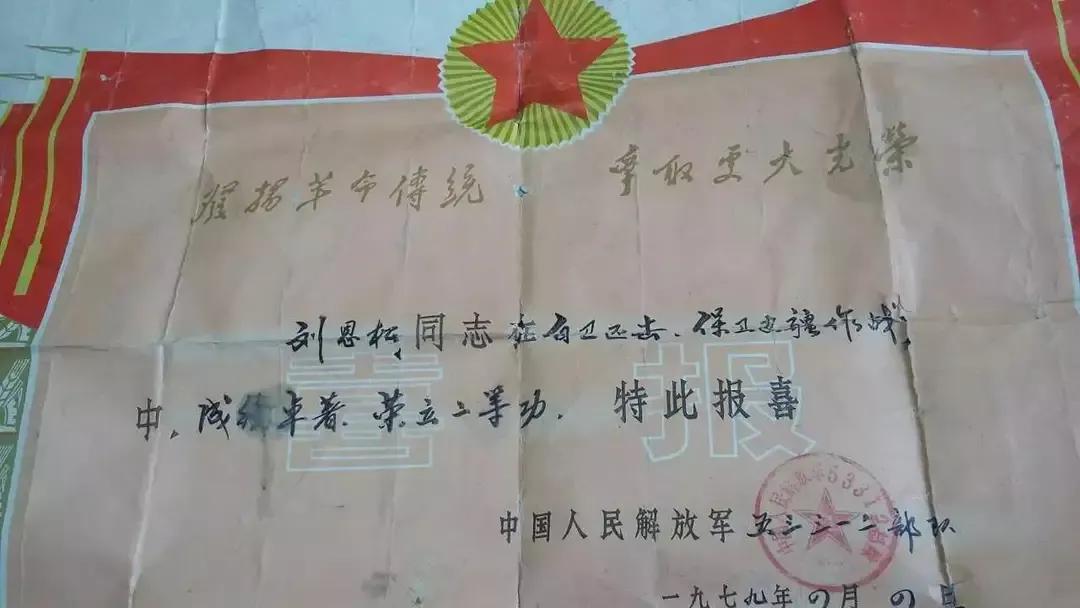 发扬革命傳統 争取更大光荣
刘恩松同志在自卫还击、保卫边疆作战
中，成绩卓著，荣立二等功，特此报喜
喜报
中国人民解放军五三三一二部队
一九七九年四月四日